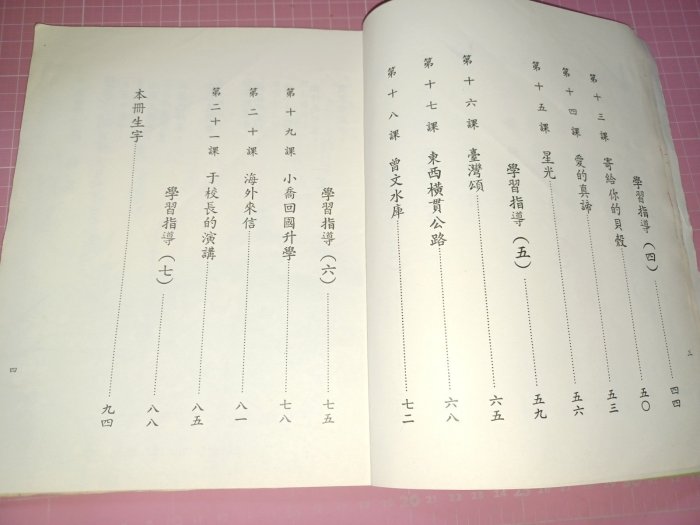 學習指導(四)⋯⋯四四
第十三課 寄給你的貝殼⋯⋯五〇
第十四課 愛的真諦⋯⋯五三
第十五課 星光⋯⋯五六
學習指導(五)⋯⋯五九
第十六課 臺灣頌⋯⋯六五
第十七課 東西橫貫公路⋯⋯六八
第十八課 曾文水庫⋯⋯七二
三
學習指導(六)⋯⋯七五
第十九課 小喬回國升學⋯⋯七八
第二十課 海外來信⋯⋯八一
第二十一課 于校長的演講⋯⋯八五
學習指導(七)⋯⋯八八
本冊生字⋯⋯九四
四